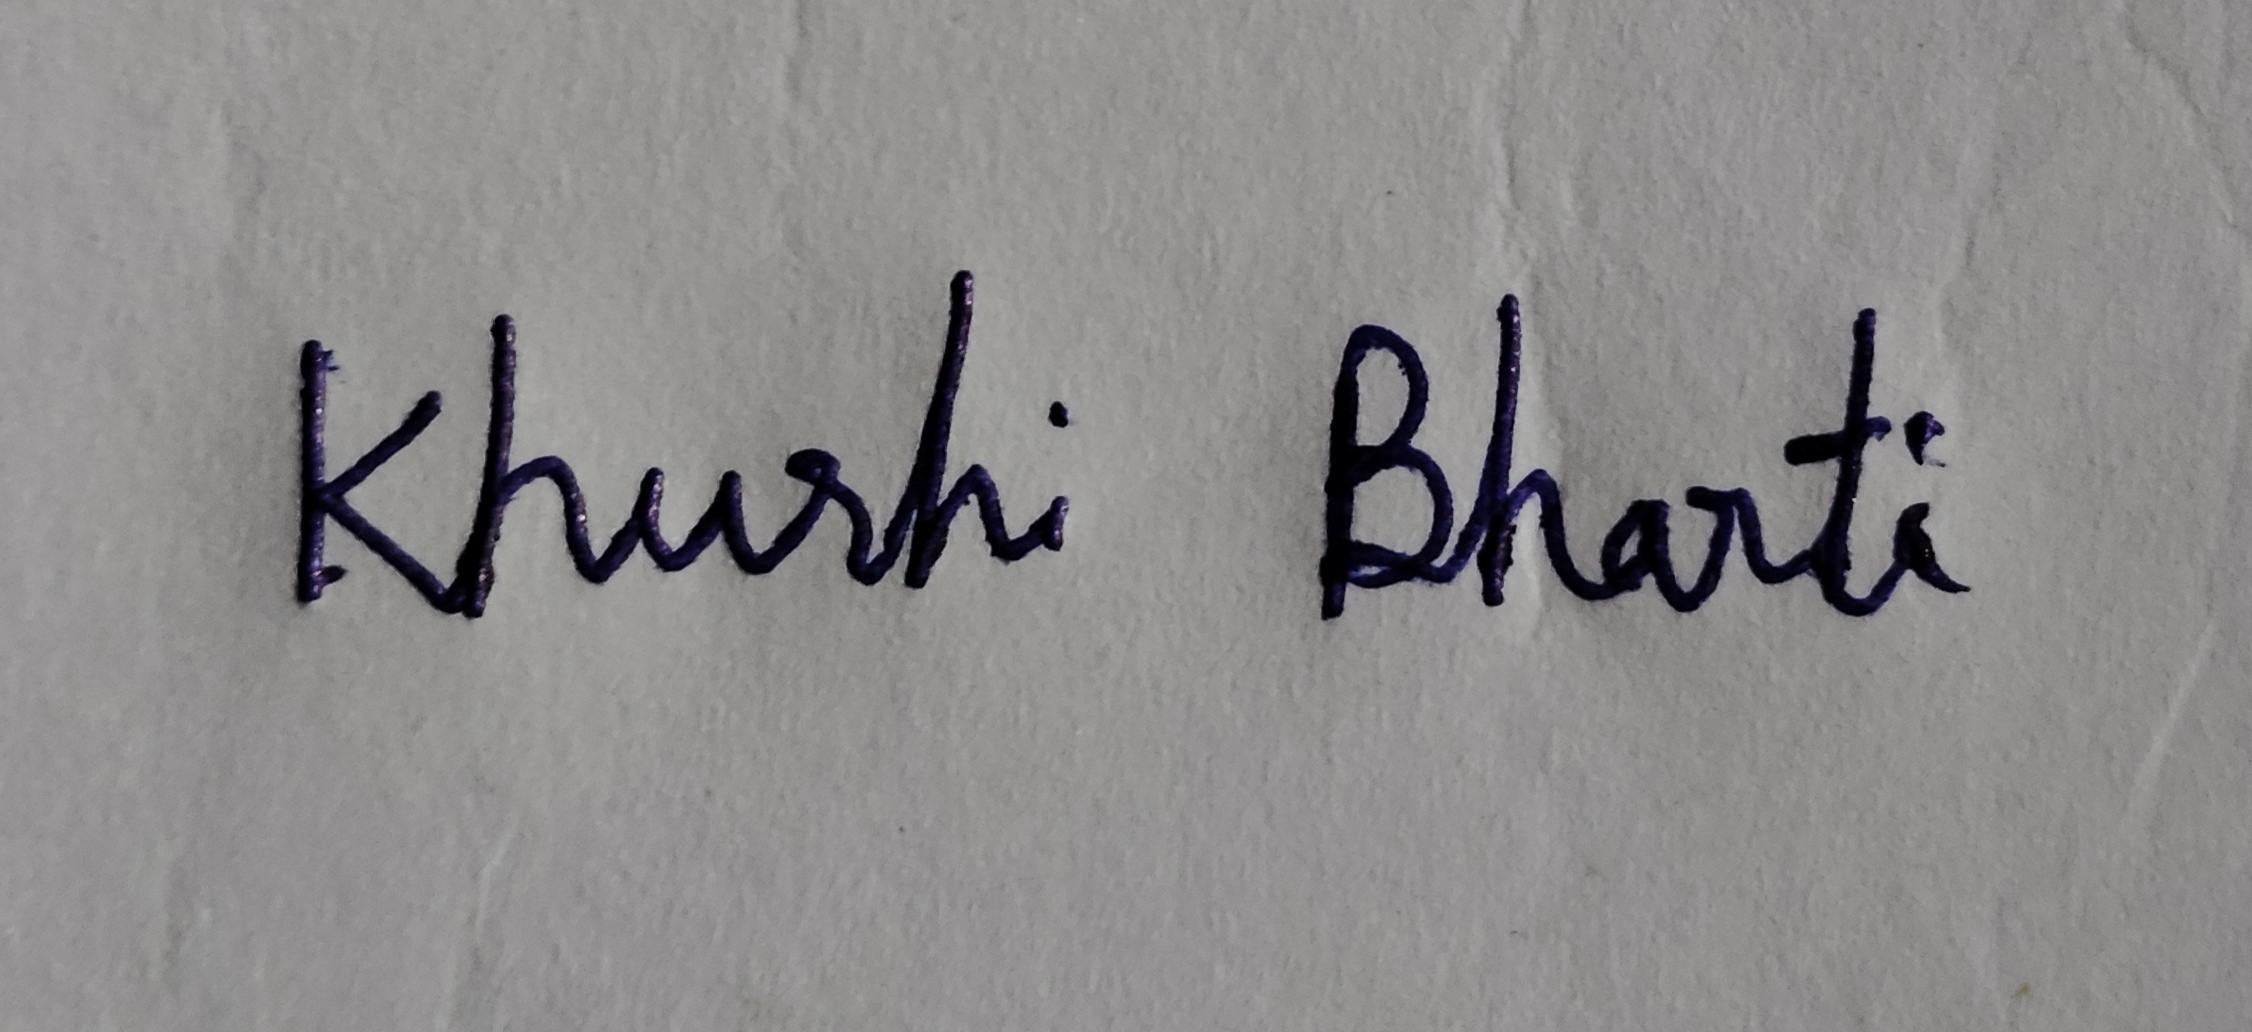 Khushi Bharti